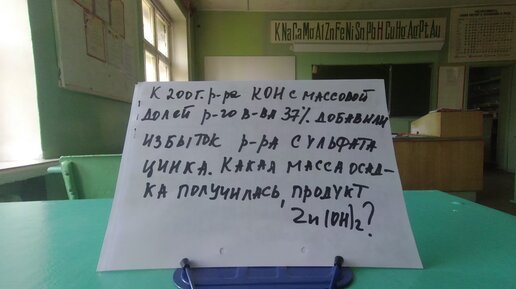 K Na Ca Mg Al Zn Fe Ni Sn Pb H Cu Hg Ag Pt Au
К 200г. р-ра KOH с массовой
долей р-го в-ва 37% добавили
избыток р-ра сульфата
цинка. Какая масса осад-
ка получилась, продукт
Zn(OH)₂?